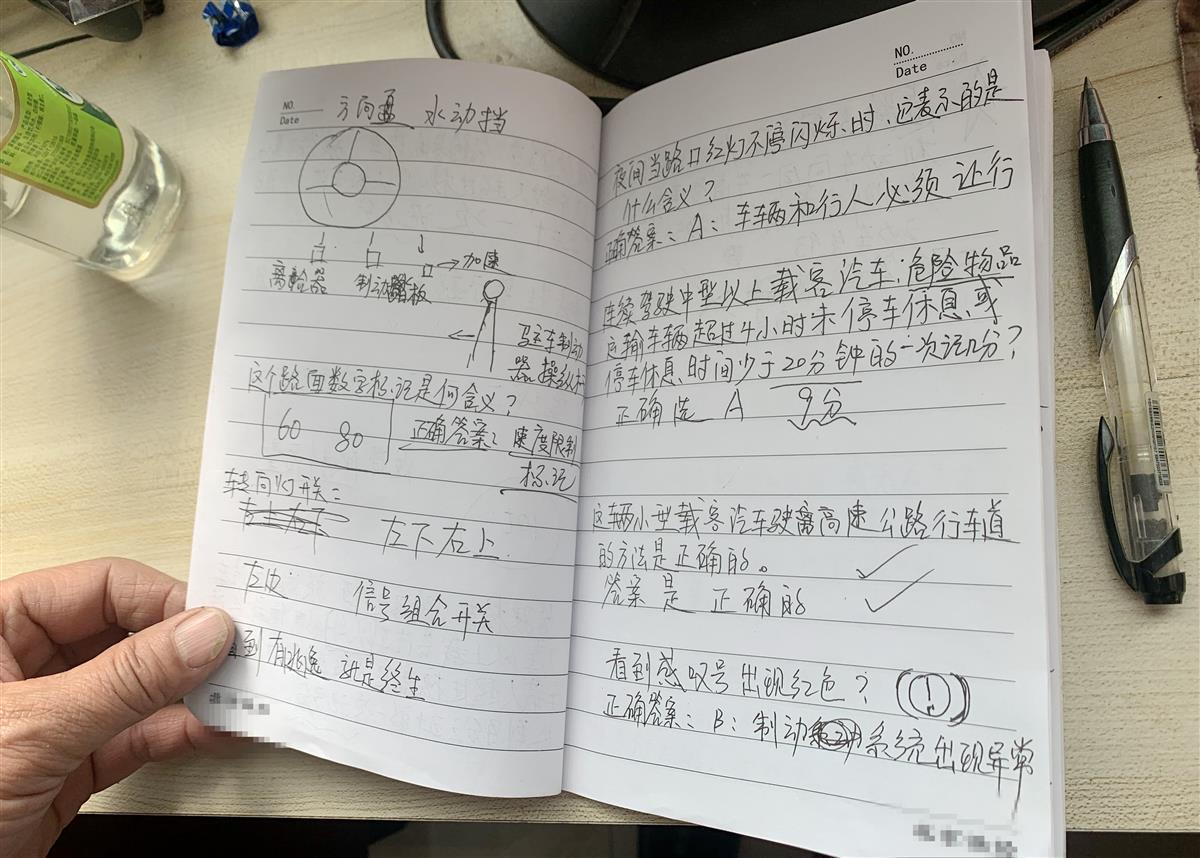 NO.
Date
方向盘 水动挡
离合器
制动踏板
加速
驻车制动
器操纵杆
这个路面数字标记是何含义？
60 80
正确答案：速度限制
标记
转向灯开关：
左下右上
左边 信号组合开关
看到有逃逸 就是终生
NO.
Date
夜间当路口红灯不停闪烁、时，它表示的是
什么含义？
正确答案：A：车辆和行人必须让行
连续驾驶中型以上载客汽车、危险物品
运输车辆超过4小时未停车休息、或
停车休息、时间少于20分钟的一次记几分？
正确选 A 9分
这辆小型载客汽车驶离高速公路行车道
的方法是正确的。
答案是 正确的
看到感叹号出现红色？(!)
正确答案：B：制动系统出现异常